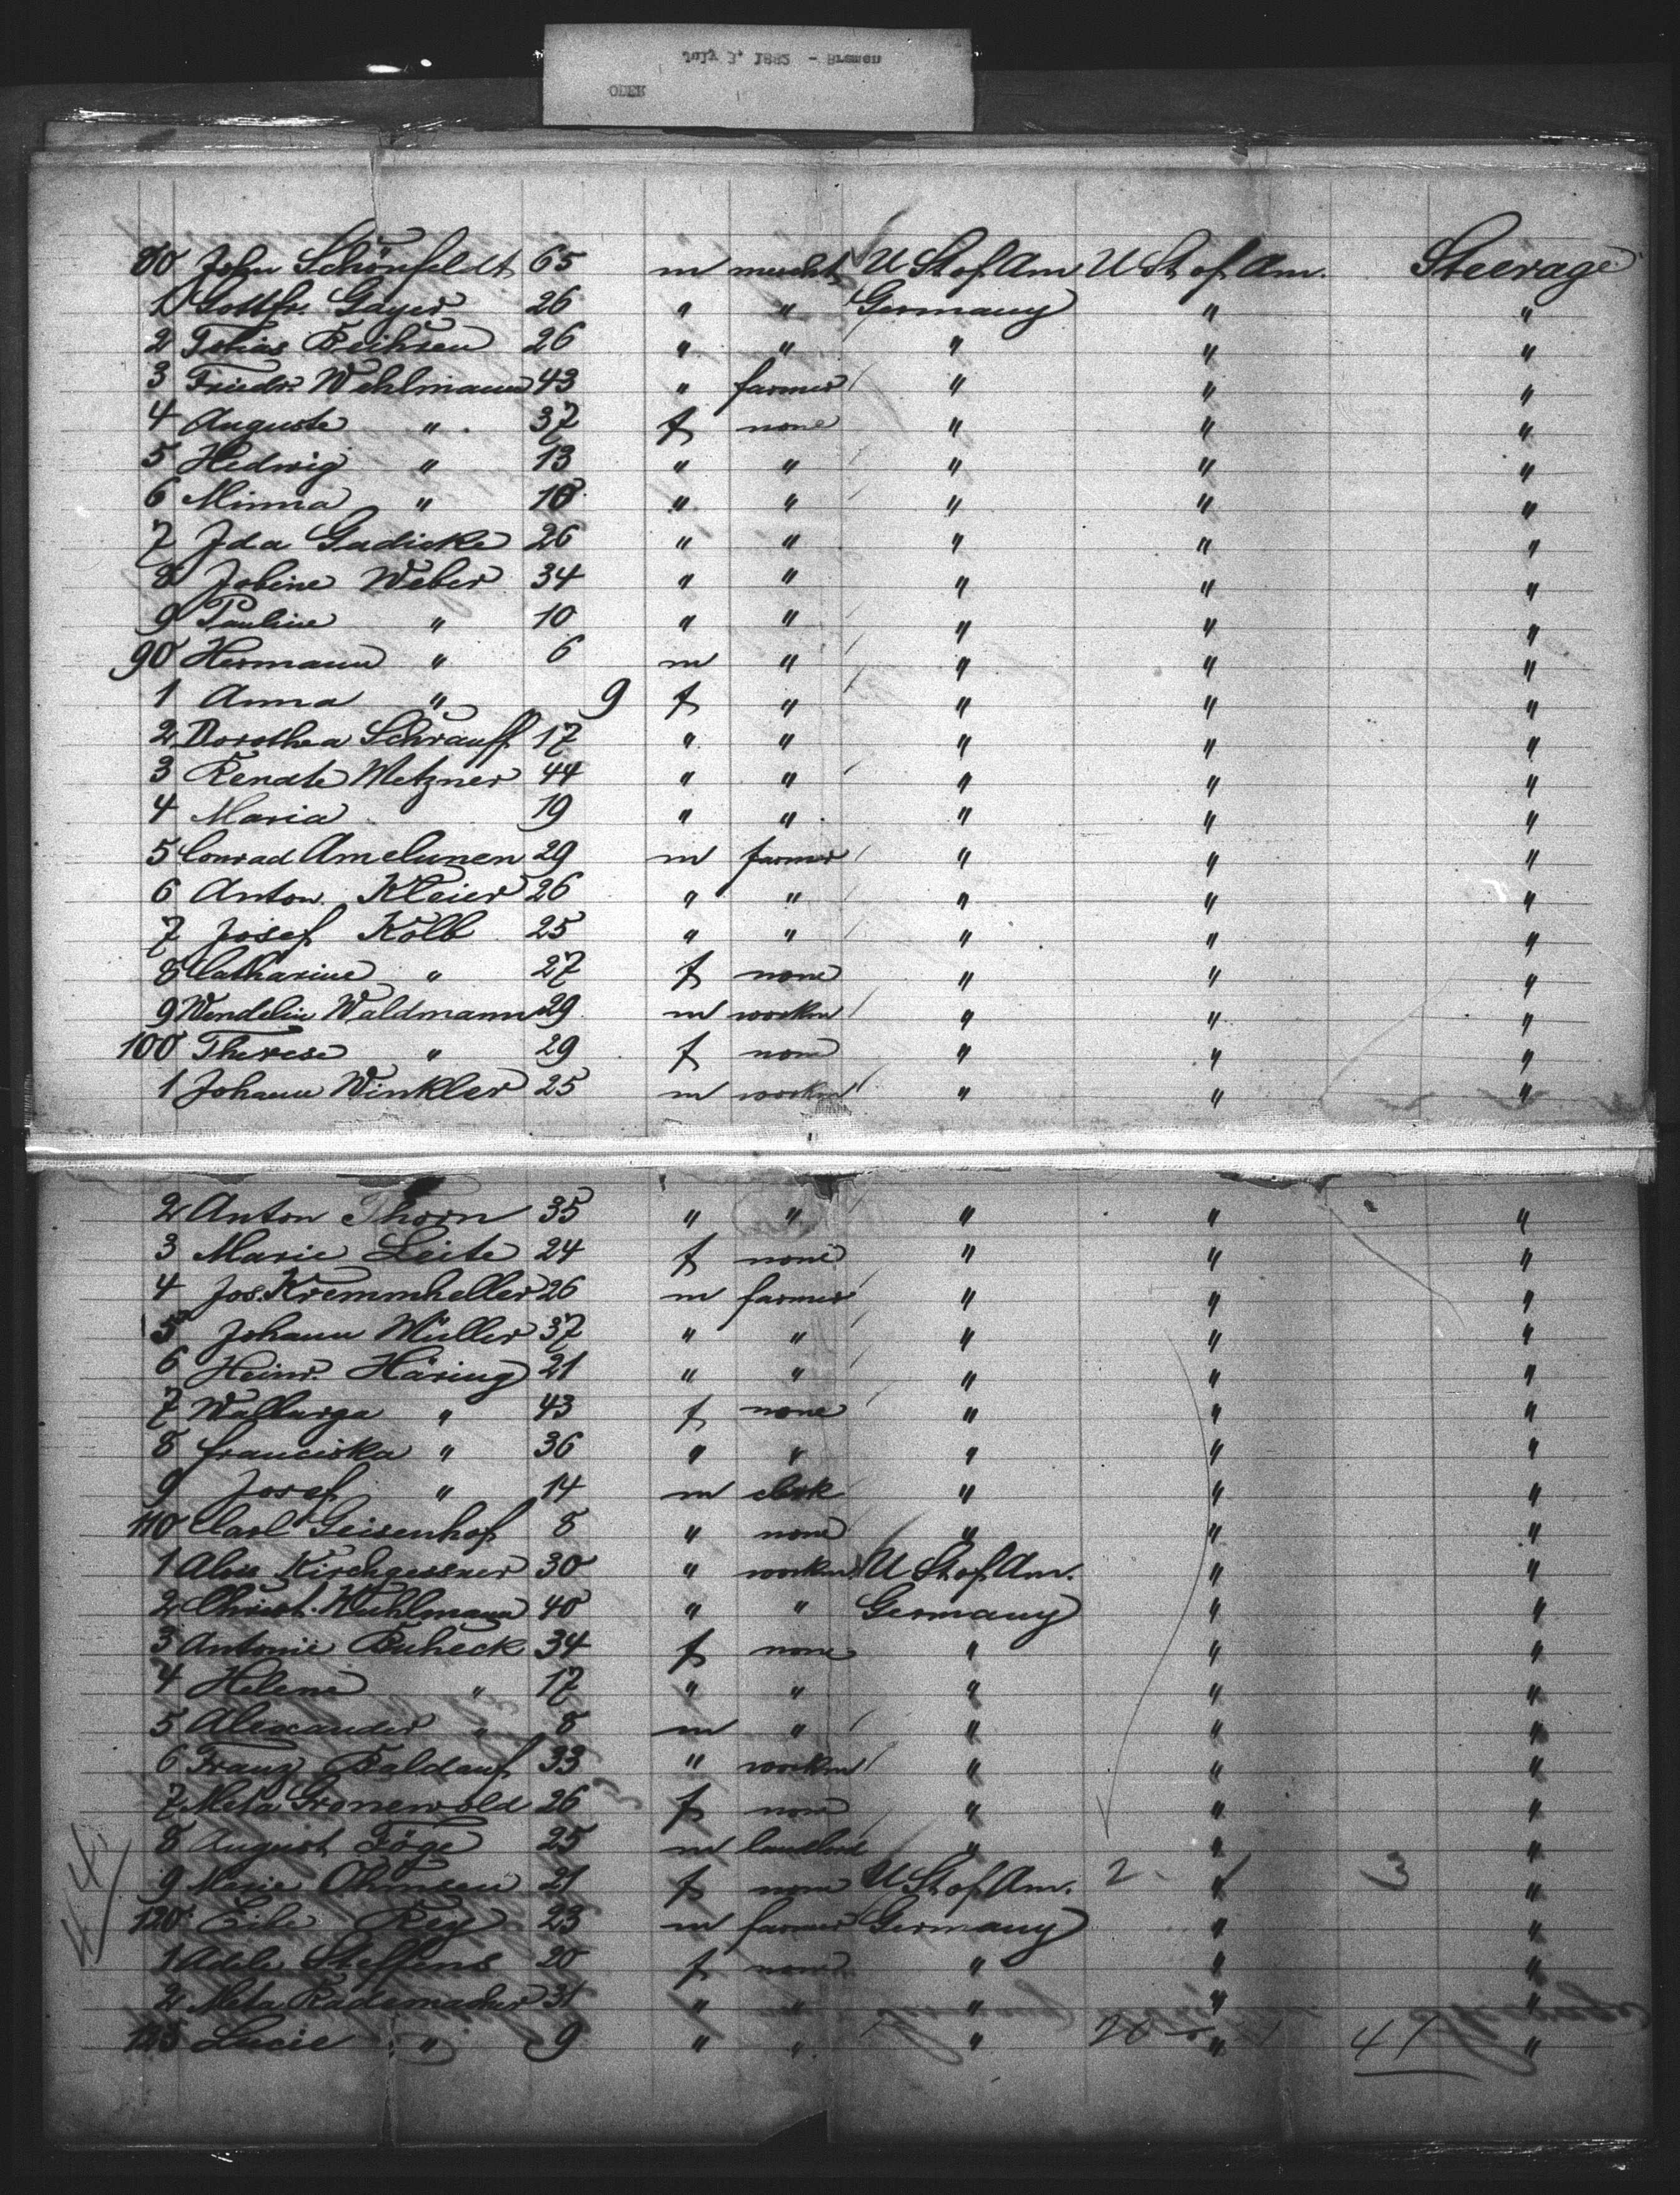 July 3. 1882 - Bremen
ODER
80 John Schönfeldt 65 m mercht U St of Am U St of Am. Steerage
1 Gottfr. Gayer 26 " " Germany " "
2 Tobias Beihsen 26 " " " " "
3 Friedr. Wehlmann 43 " farmer " " "
4 Auguste " 37 f none " " "
5 Hedwig " 13 " " " " "
6 Minna " 10 " " " " "
7 Ida Gadicke 26 " " " " "
8 Weber 34 " " " " "
9 Pauline " 10 " " " " "
90 Hermann " 6 m " " " "
1 Anna " 9 f " " " "
2 Dorothea Schrauff 17 " " " " "
3 Renate Metzner 44 " " " " "
4 Maria 19 " " " " "
5 Conrad Amelunen 29 m farmer " " "
6 Anton Kleier 26 " " " " "
7 Josef Kolb 25 " " " " "
8 Catharine " 27 f none " " "
9 Wendelin Waldmann 29 m workm " " "
100 Therese " 29 f none " " "
1 Johann Winkler 25 m workm " " "
2 Anton Thorn 35 " " " " "
3 Marie Leite 24 f none " " "
4 Jos. Kremmheller 26 m farmer " " "
5 Johann Müller 37 " " " " "
6 Heinr. Häring 21 " " " " "
7 Wallurga " 43 f none " " "
8 Franciska " 36 " " " " "
9 Josef " 14 m clerk " " "
110 Carl Geisenhof 8 " none " " "
1 Alois Kirchgessner 30 " workm U St of Am. " "
2 Christ. Kuhlmann 40 " " Germany " "
3 Antonie Buheck 34 f none " " "
4 Helene " 17 " " " " "
5 Alexander " 8 m " " " "
6 Franz Baldauf 33 " workm " " "
7 Meta Gronewold 26 f none " " "
8 August Föge 25 m landlord " " "
9 Marie Ohmsen 21 f none U St of Am. 2 " 3 "
120 Eibe Rey 23 m farmer Germany " "
1 Adele Steffens 20 f none " " "
2 Meta Rademacher 31 " " " " "
123 Lucie " 9 " " " 20 " 41 "